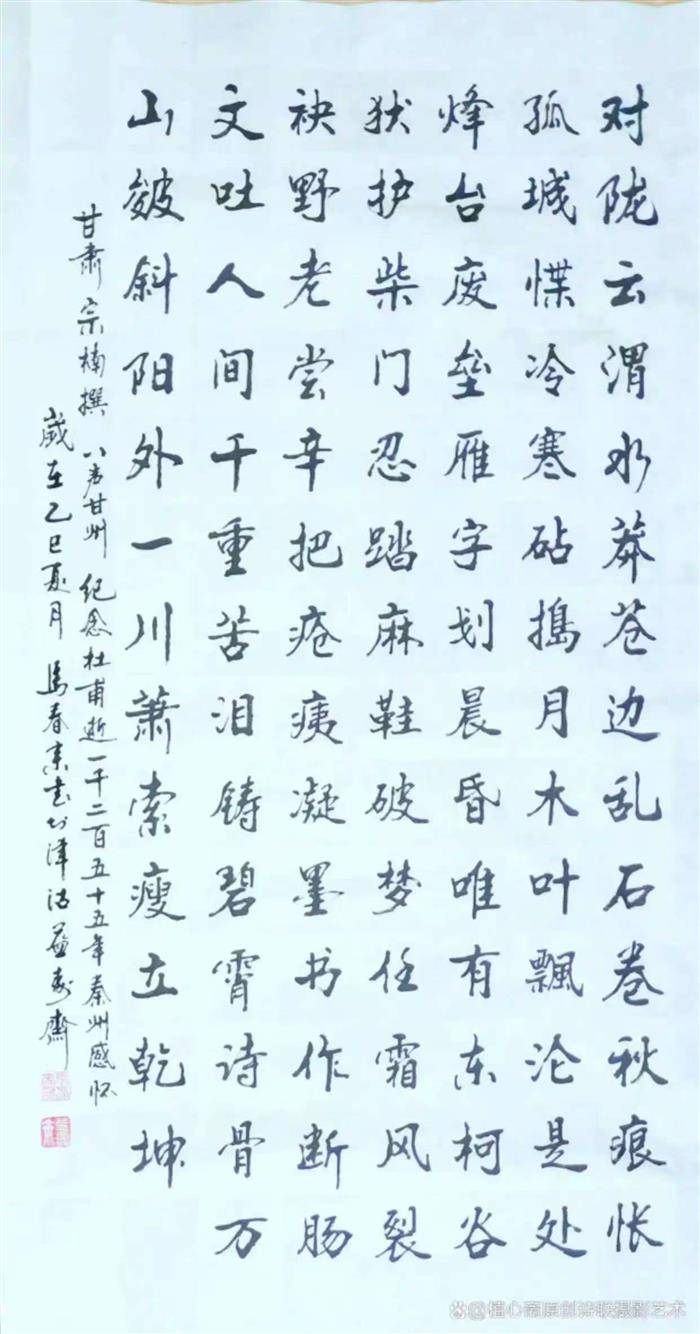 对陇云渭水莽苍苍边乱石卷秋痕怅
孤城惵冷寒砧捣月木叶飘沦是处
烽台废垒雁字划晨昏唯有东柯谷
狄护柴门忍踏麻鞋破梦任霜风裂
袂野老尝辛把疮痍凝墨书作断肠
文吐人间千重苦泪铸碧霄诗骨万
山皴斜阳外一川萧索瘦立乾坤
甘肃宗楠撰八声甘州纪念杜甫逝一千二百五十五年秦州感怀
岁在乙巳夏月马春来书于津沽益寿斋
@植心斋原创诗联摄影艺术